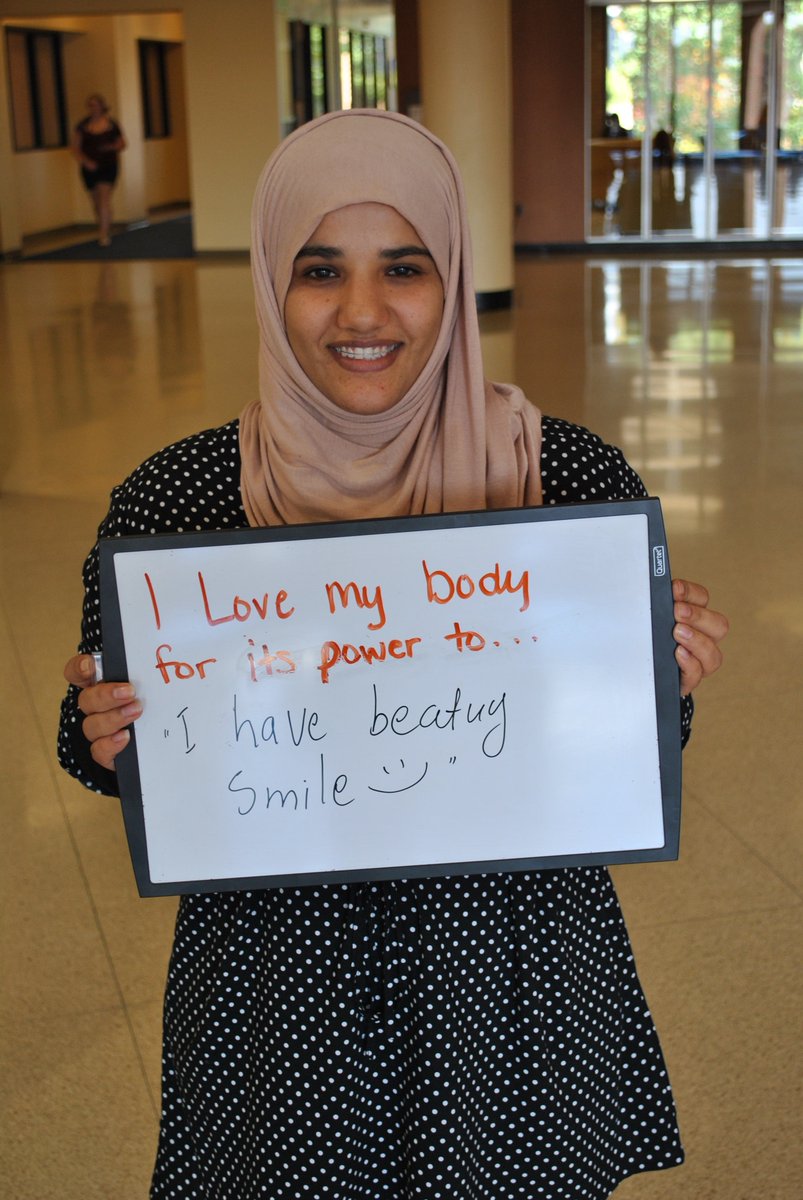 I Love my body
for its power to...
"I have beatuy
smile "
Quartet